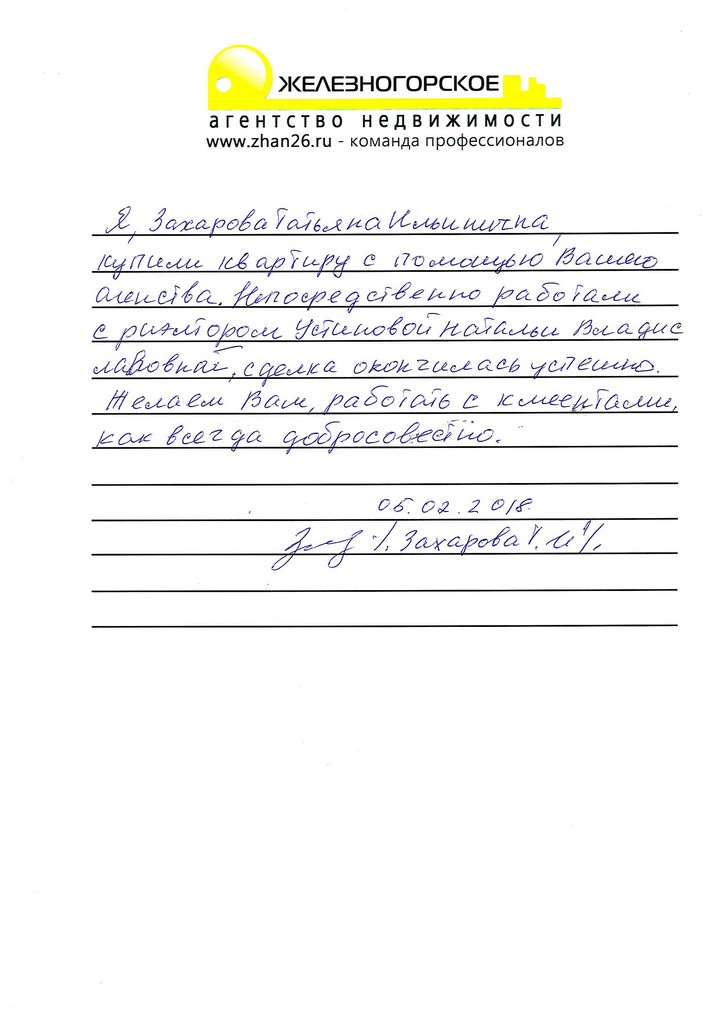 ЖЕЛЕЗНОГОРСКОЕ
агентство недвижимости
www.zhan26.ru - команда профессионалов
Я, Захарова Татьяна Ильинична,
купили квартиру с помощью Вашего
агенства. Непосредственно работали
с риэлтором Устиновой Натальи Владис
лавовной, сделка окончилась успешно.
Желаем Вам, работать с клиентами,
как всегда добросовестно.
05.02.2018.
/. Захарова Т. И /.